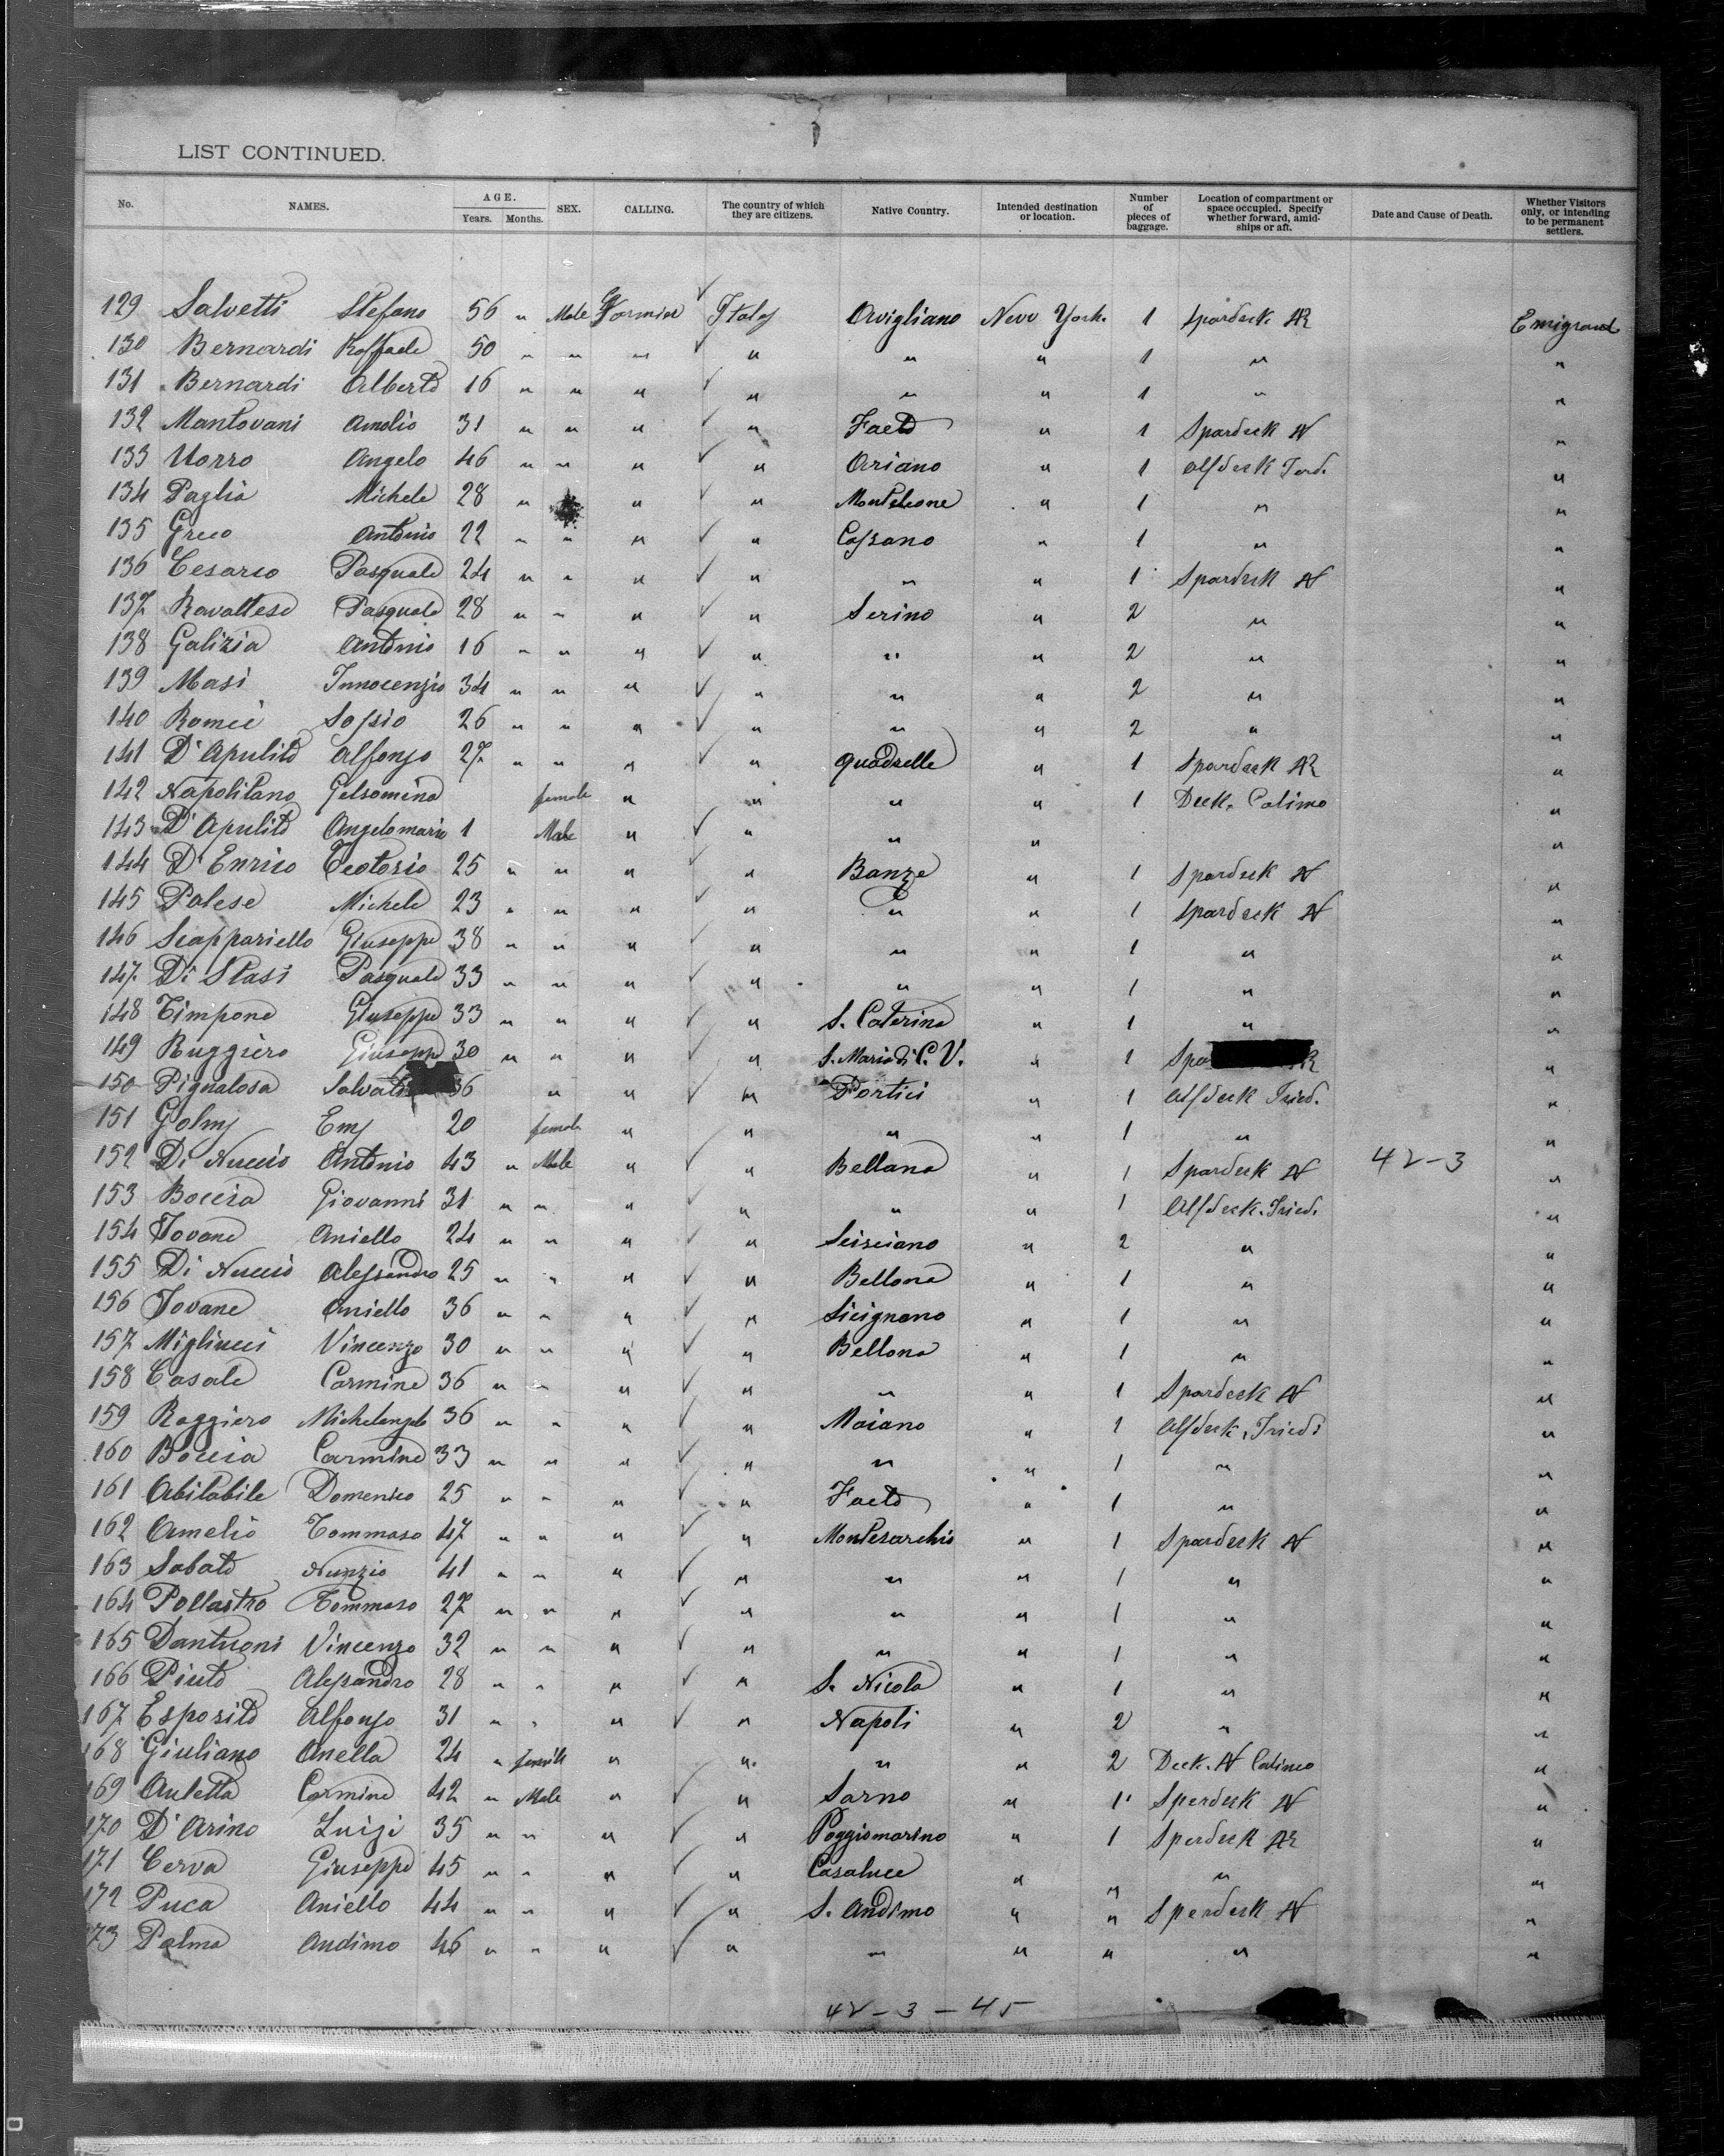 LIST CONTINUED.
No. NAMES. AGE. Years. Months. SEX. CALLING. The country of which they are citizens. Native Country. Intended destination or location. Number of pieces of baggage. Location of compartment or space occupied. Specify whether forward, amidships or aft. Date and Cause of Death. Whether Visitors only, or intending to be permanent settlers.
129 Salvetti Stefano 56 " Male Italy Avigliano New York 1 Spardeck AR Emigrand
130 Bernardi Raffaele 50 " " " " " " 1 " "
131 Bernardi Alberto 16 " " " " " " 1 " "
132 Mantovani Amelio 31 " " " " Faeto " 1 Spardeck N "
133 Uorro Angelo 46 " " " " Ariano " 1 "
134 Paglia Michele 28 " " " Monteleone " 1 " "
135 Greco Antonio 22 " " " " Cassano " 1 " "
136 Cesareo Pasquale 24 " " " " " " 1 Spardeck N "
137 Ravallese Pasquale 28 " " " " Serino " 2 " "
138 Galizia Antonio 16 " " " " " " 2 " "
139 Masi Innocenzio 34 " " " " " " 2 " "
140 Romei Sossio 26 " " " " " " 2 " "
141 D'Apulito Alfonso 27 " " " " Quadrelle " 1 Spardeck AR "
142 Napolitano Gelsomina female " " " " 1 Deck. "
143 D'Apulito Angelomaria 1 Male " " " " "
144 D'Enrico Teotosio 25 " " " " Banze " 1 Spardeck N "
145 Palese Michele 23 " " " " " " 1 Spardeck N "
146 Scappariello Giuseppe 38 " " " " " " 1 " "
147 Di Stasi Pasquale 33 " " " " " " 1 " "
148 Timpone Giuseppe 33 " " " " S. Caterina " 1 " "
149 Ruggiero Giuseppe 30 " " " " S. Maria di C. V. " 1 "
150 Pignalosa 36 " " " Portici " 1 "
151 Golmy Emy 20 female " " " " 1 " "
152 Di Nuccio Antonio 43 " Male " " Bellana " 1 Spardeck N 42-3 "
153 Boccia Giovanni 31 " " " " " " 1 "
154 Iovane Aniello 24 " " " " Scisciano " 2 " "
155 Di Nuccio Alessandro 25 " " " " Bellona " 1 " "
156 Iovane Aniello 36 " " " " Sicignano " 1 " "
157 Migliucci Vincenzo 30 " " " " Bellona " 1 " "
158 Casale Carmine 36 " " " " " " 1 Spardeck N "
159 Raggiero Michelangelo 36 " " " " Moiano " 1 "
160 Boccia Carmine 33 " " " " " " 1 " "
161 Abitabile Domenico 25 " " " " Faeto " 1 " "
162 Amelio Tommaso 47 " " " " Montesarchio " 1 Spardeck N "
163 Sabato Nunzio 41 " " " " " " 1 " "
164 Pollastro Tommaso 27 " " " " " " 1 " "
165 Dantuoni Vincenzo 32 " " " " " " 1 " "
166 Piuto Alessandro 28 " " " " S. Nicola " 1 " "
167 Esposito Alfonso 31 " " " " Napoli " 2 " "
168 Giuliano Anella 24 " female " " " " 2 Deck. N "
169 Auletta Carmine 42 " Male " " Sarno " 1 Sperdeck N "
170 D'Arino Luigi 35 " " " " Poggiomarino " 1 Sperdeck AR "
171 Cerva Giuseppe 45 " " " " Casaluce " " " "
172 Puca Aniello 44 " " " " S. Andimo " " Sperdeck N "
173 Palma Andimo 46 " " " " " " " " "
42-3-45